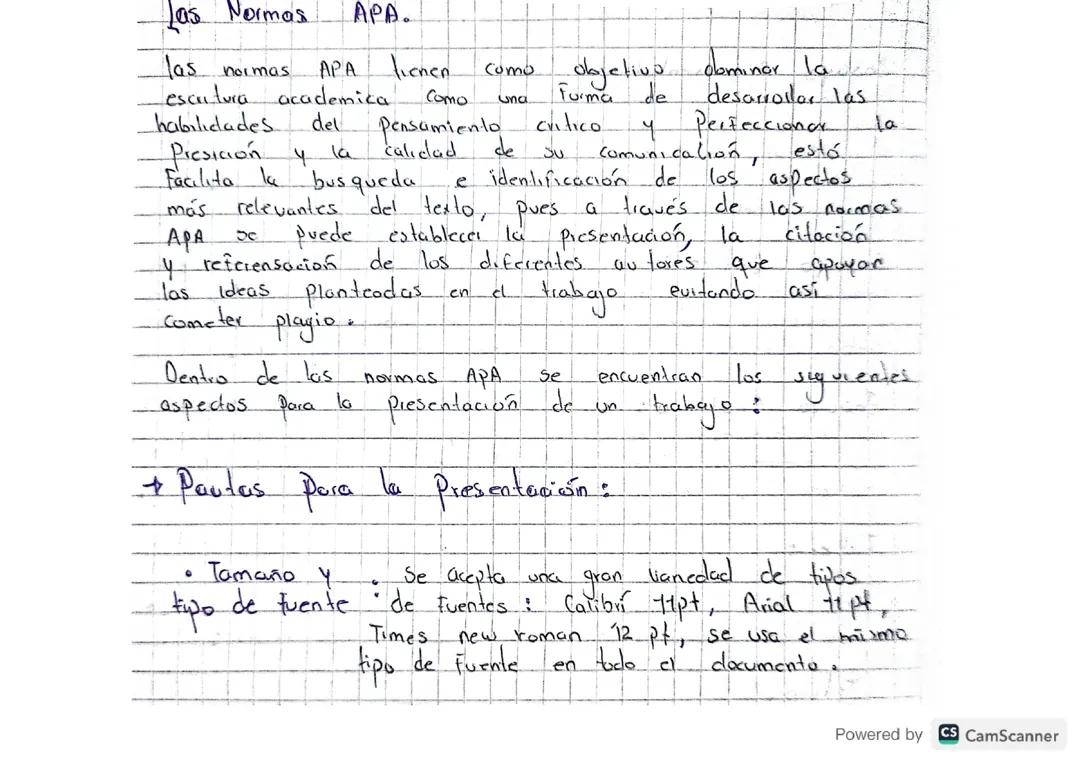 Las Normas APA.
las normas APA tienen como objetivo dominar la
escritura academica como una forma de desarrollar las
habilidades del pensamiento critico y Perfeccionar la
Presición y la calidad de su comunicación, estó
Facilita la busqueda e identificación de los aspectos
más relevantes del texto, pues a través de las normas
APA se puede establecer la presentación, la citación
y referensación de los diferentes autores que apoyan
las ideas planteadas en el trabajo evitando así
cometer plagio.
Dentro de las normas APA se encuentran los siguientes
aspectos para la presentación de un trabajo:
→ Pautas para la Presentación:
• Tamaño y • Se acepta una gran variedad de tipos
tipo de fuente : de Fuentes: Calibrí 11pt, Arial 11 pt,
Times new roman 12 pt, se usa el mismo
tipo de Fuente en todo el documento.
Powered by CS CamScanner